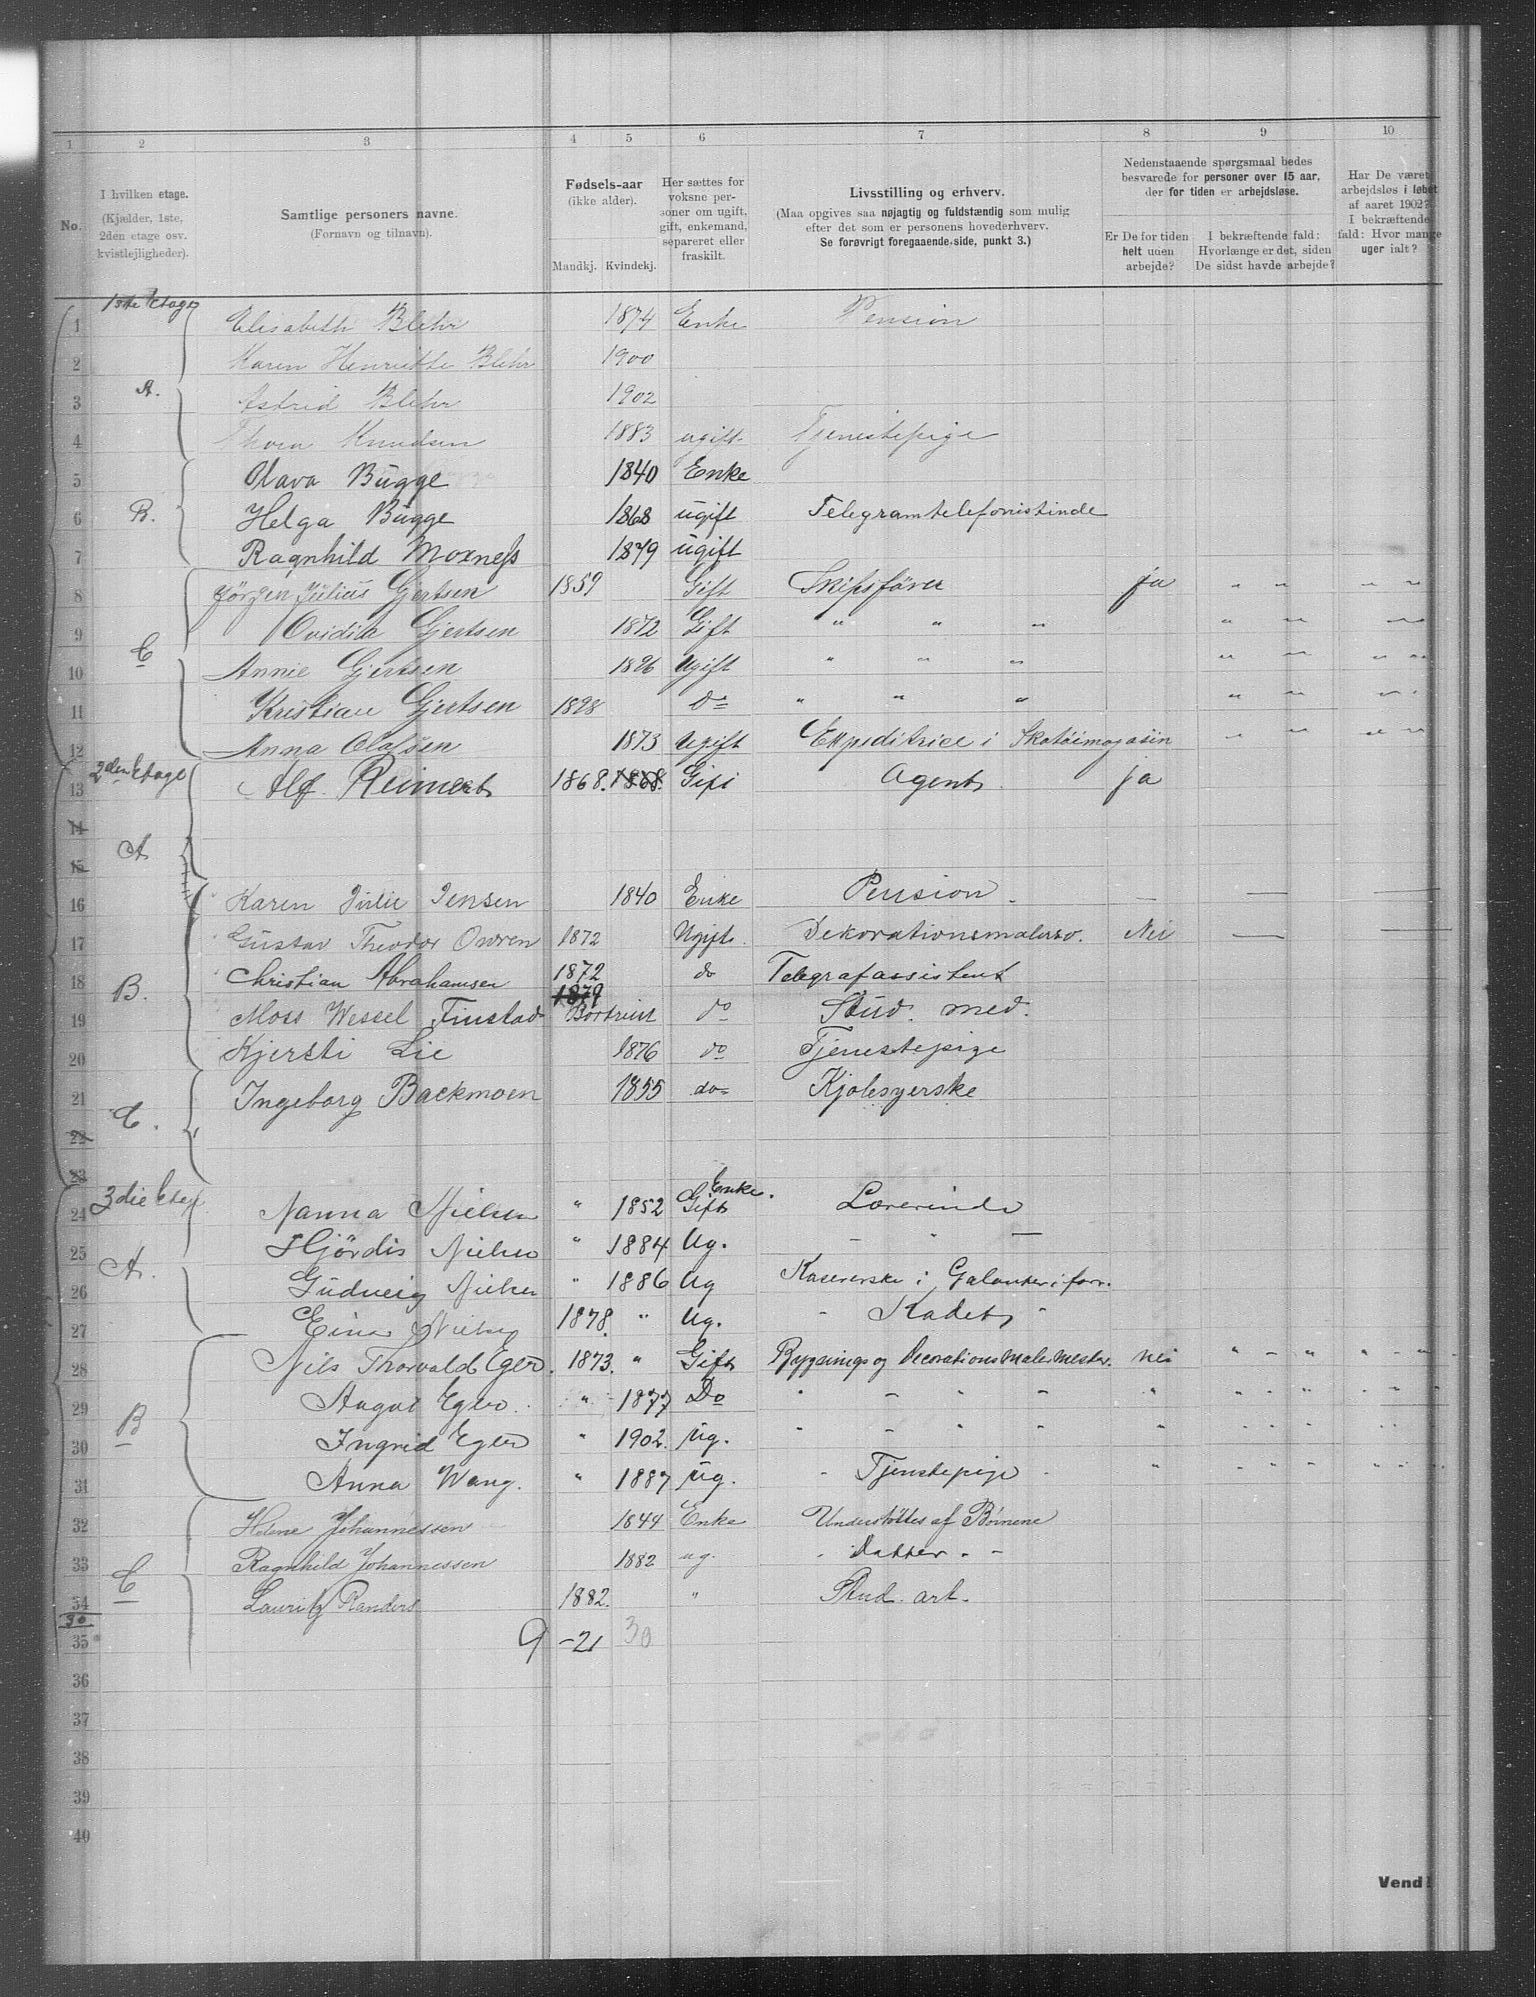 1 2 3 4 5 6 7 8 9 10
No.
I hvilken etage.
(Kjælder, 1ste, 2den etage osv. kvistlejligheder).
Samtlige personers navne.
(Fornavn og tilnavn).
Fødsels-aar
(ikke alder).
Mandkj. Kvindekj.
Her sættes for voksne personer om ugift, gift, enkemand, separeret eller fraskilt.
Livsstilling og erhverv.
(Maa opgives saa nøjagtig og fuldstændig som mulig efter det som er personens hovederhverv.
Se forøvrigt foregaaende side, punkt 3.)
Nedenstaaende spørgsmaal bedes besvarede for personer over 15 aar, der for tiden er arbejdsløse.
Er De for tiden helt uden arbejde?
I bekræftende fald: Hvorlænge er det, siden De sidst havde arbejde?
Har De været arbejdsløs i løbet af aaret 1902? I bekræftende fald: Hvor mange uger ialt?
1ste Etage
1 Elisabeth Blehr 1874 Enke Pension
2 Karen Henriette Blehr 1900
A.
3 Astrid Blehr 1902
4 Thora Knudsen 1883 ugift Tjenestepige
5 Olava Bügge 1840 Enke
6 B. Helga Bügge 1868 ugift Telegramtelefonistinde
7 Ragnhild Moxness 1879 ugift
8 Jørgen Julius Gjertsen 1859 Gift Skibsfører ja " " " "
9 Ovidia Gjertsen 1872 Gift " " " " " "
C
10 Annie Gjertsen 1896 Ugift " " " " " "
11 Kristian Gjertsen 1898 do " " " " " "
12 Anna Olafsen 1873 Ugift Expeditrice i Skotøimagasin " " " "
2den Etage
13 Alf Reimers 1868. 1868. Gift Agent ja
14
A
15
16 Karen Julie Jensen 1840 Enke Pension. — — —
17 Gustav Theodor Owren 1872 Ugift. Dekorationsmalersv. Nei — —
18 Christian Abrahamsen 1872 do Telegrafassistent
B. 1879
19 Moss Wessel Finstad Bortreist do Stud. med.
20 Kjersti Lie 1876 do Tjenestepige
21 Ingeborg Backmoen 1855 do Kjolesyerske
C.
22
23
3die Etag Enke.
24 Nanna Nielsen " 1852 Gift Lærerinde
25 Hjördis Nielsen " 1884 Ug. — " —
A.
26 Gudveig Nielsen " 1886 Ug Kasererske i Galanteriforr.
27 Einar Nielsen 1878. " Ug. " Kadet "
28 Nils Thorvald Eger. 1873. " Gift Bygnings og Decorations Malermester. nei " - " " - "
29 Aagot Eger. " 1877 Do " - " - " " - " " - "
B
30 Ingrid Eger " 1902. Ug. " - " " " " " " " "
31 Anna Wang. " 1887 ug. " Tjenstepige " " " - " " " " "
32 Helene Johannessen 1844 Enke Understöttes af Børnene
33 Ragnhild Johannessen 1882 ug. " Datter " -
C
34 Lauritz Randers 1882. " Stud. art.
30
35 9 -21 30
36
37
38
39
40
Vend!